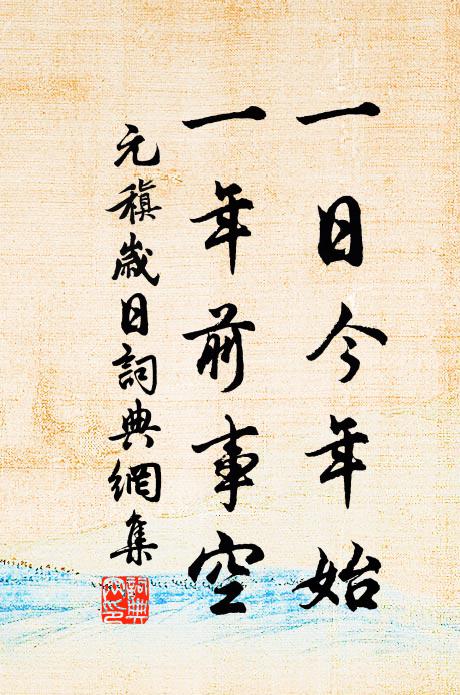 一日今年始
一年前事空
元稹歲日詞典網集